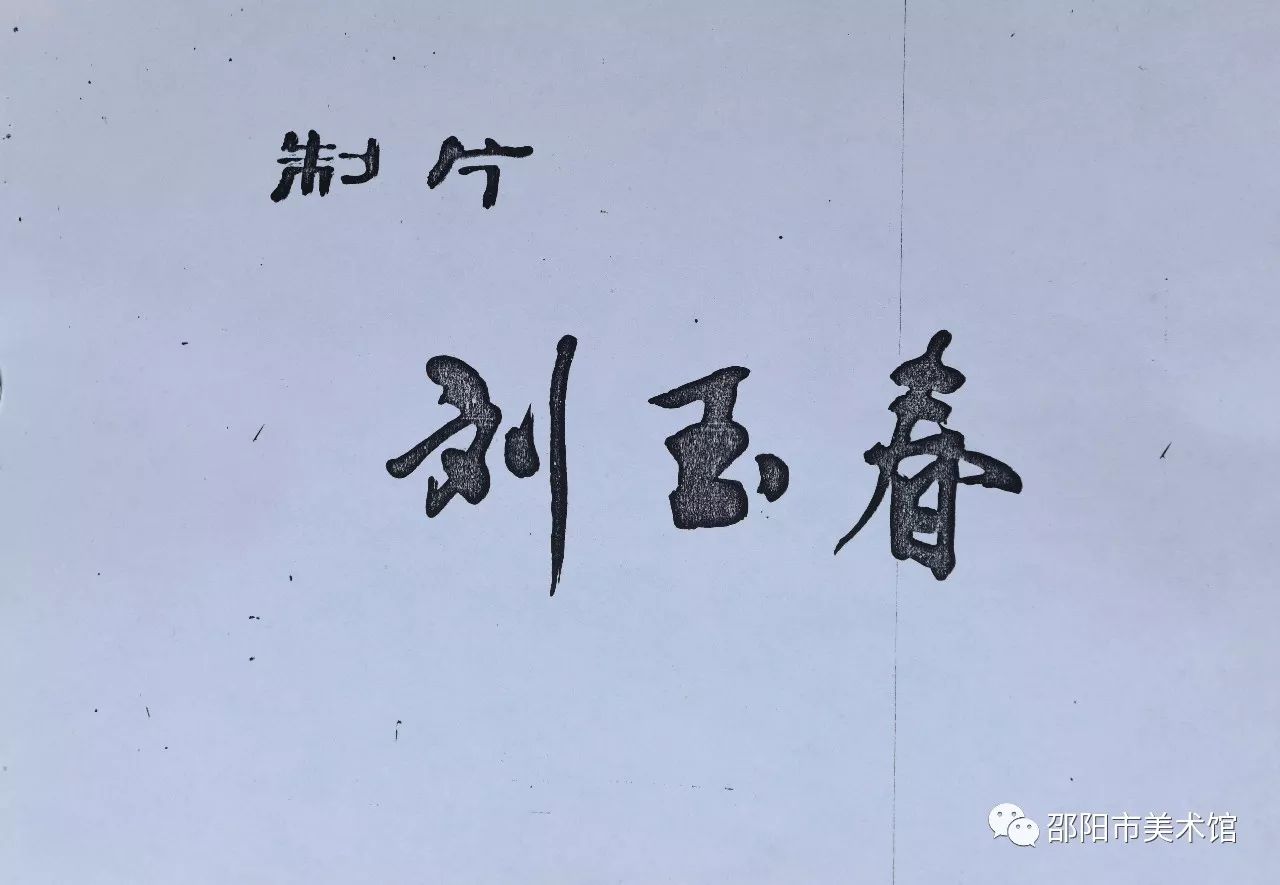 制片
刘玉春
邵阳市美术馆